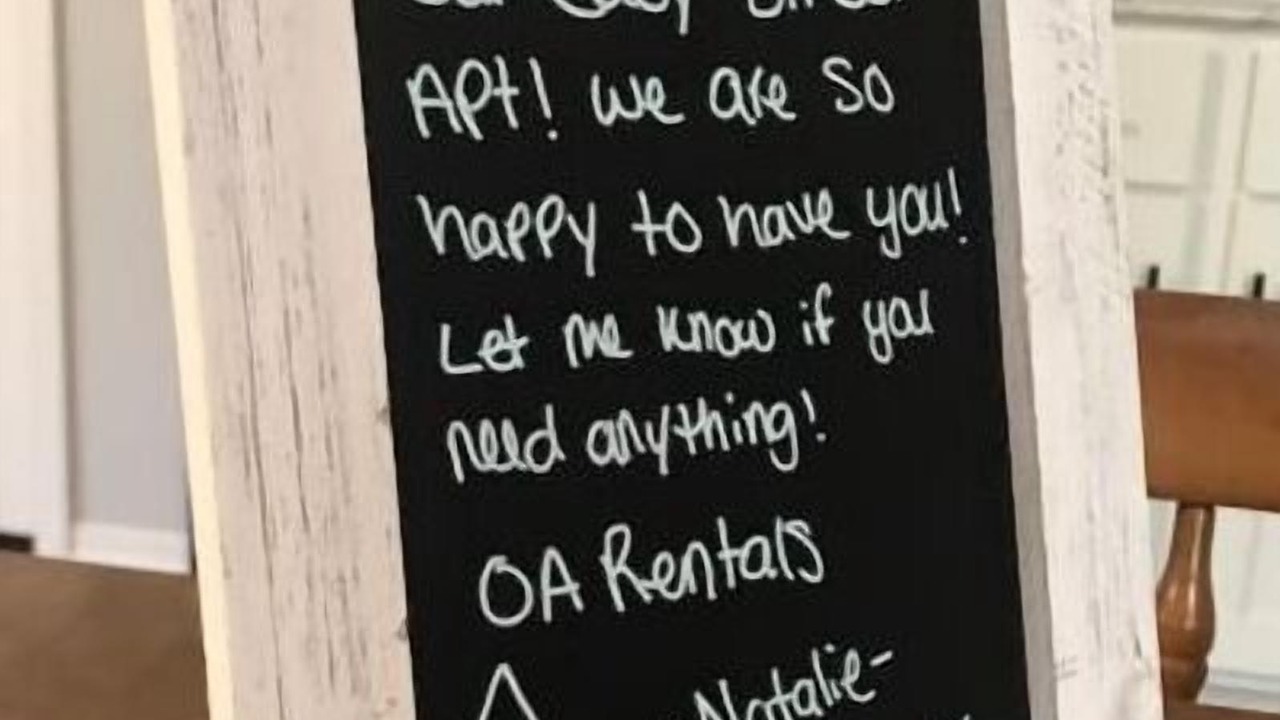 APt! we are so
happy to have you!
Let me know if you
need anything!
OA Rentals
Natalie-